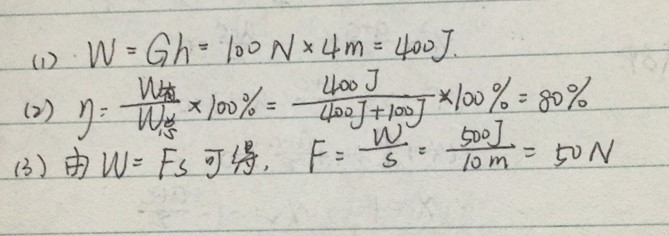 (1) W = Gh = 100N × 4m = 400J.
(2) η = W有/W总 × 100% = 400J/(400J+100J) × 100% = 80%
(3) 由 W = Fs 可得, F = W/s = 500J/10m = 50N